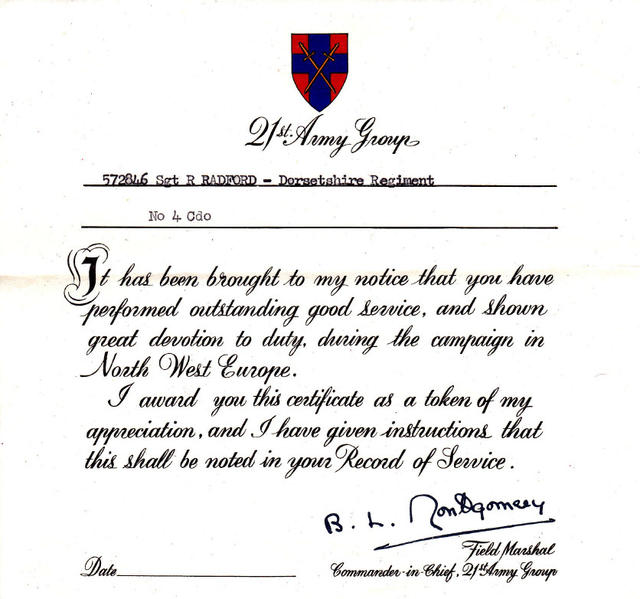 21st. Army Group
572846 Sgt R RADFORD - Dorsetshire Regiment
No 4 Cdo
It has been brought to my notice that you have
performed outstanding good service, and shown
great devotion to duty, during the campaign in
North West Europe.
I award you this certificate as a token of my
appreciation, and I have given instructions that
this shall be noted in your Record of Service.
B. L. Montgomery
Field Marshal
Date
Commander-in-Chief, 21st Army Group